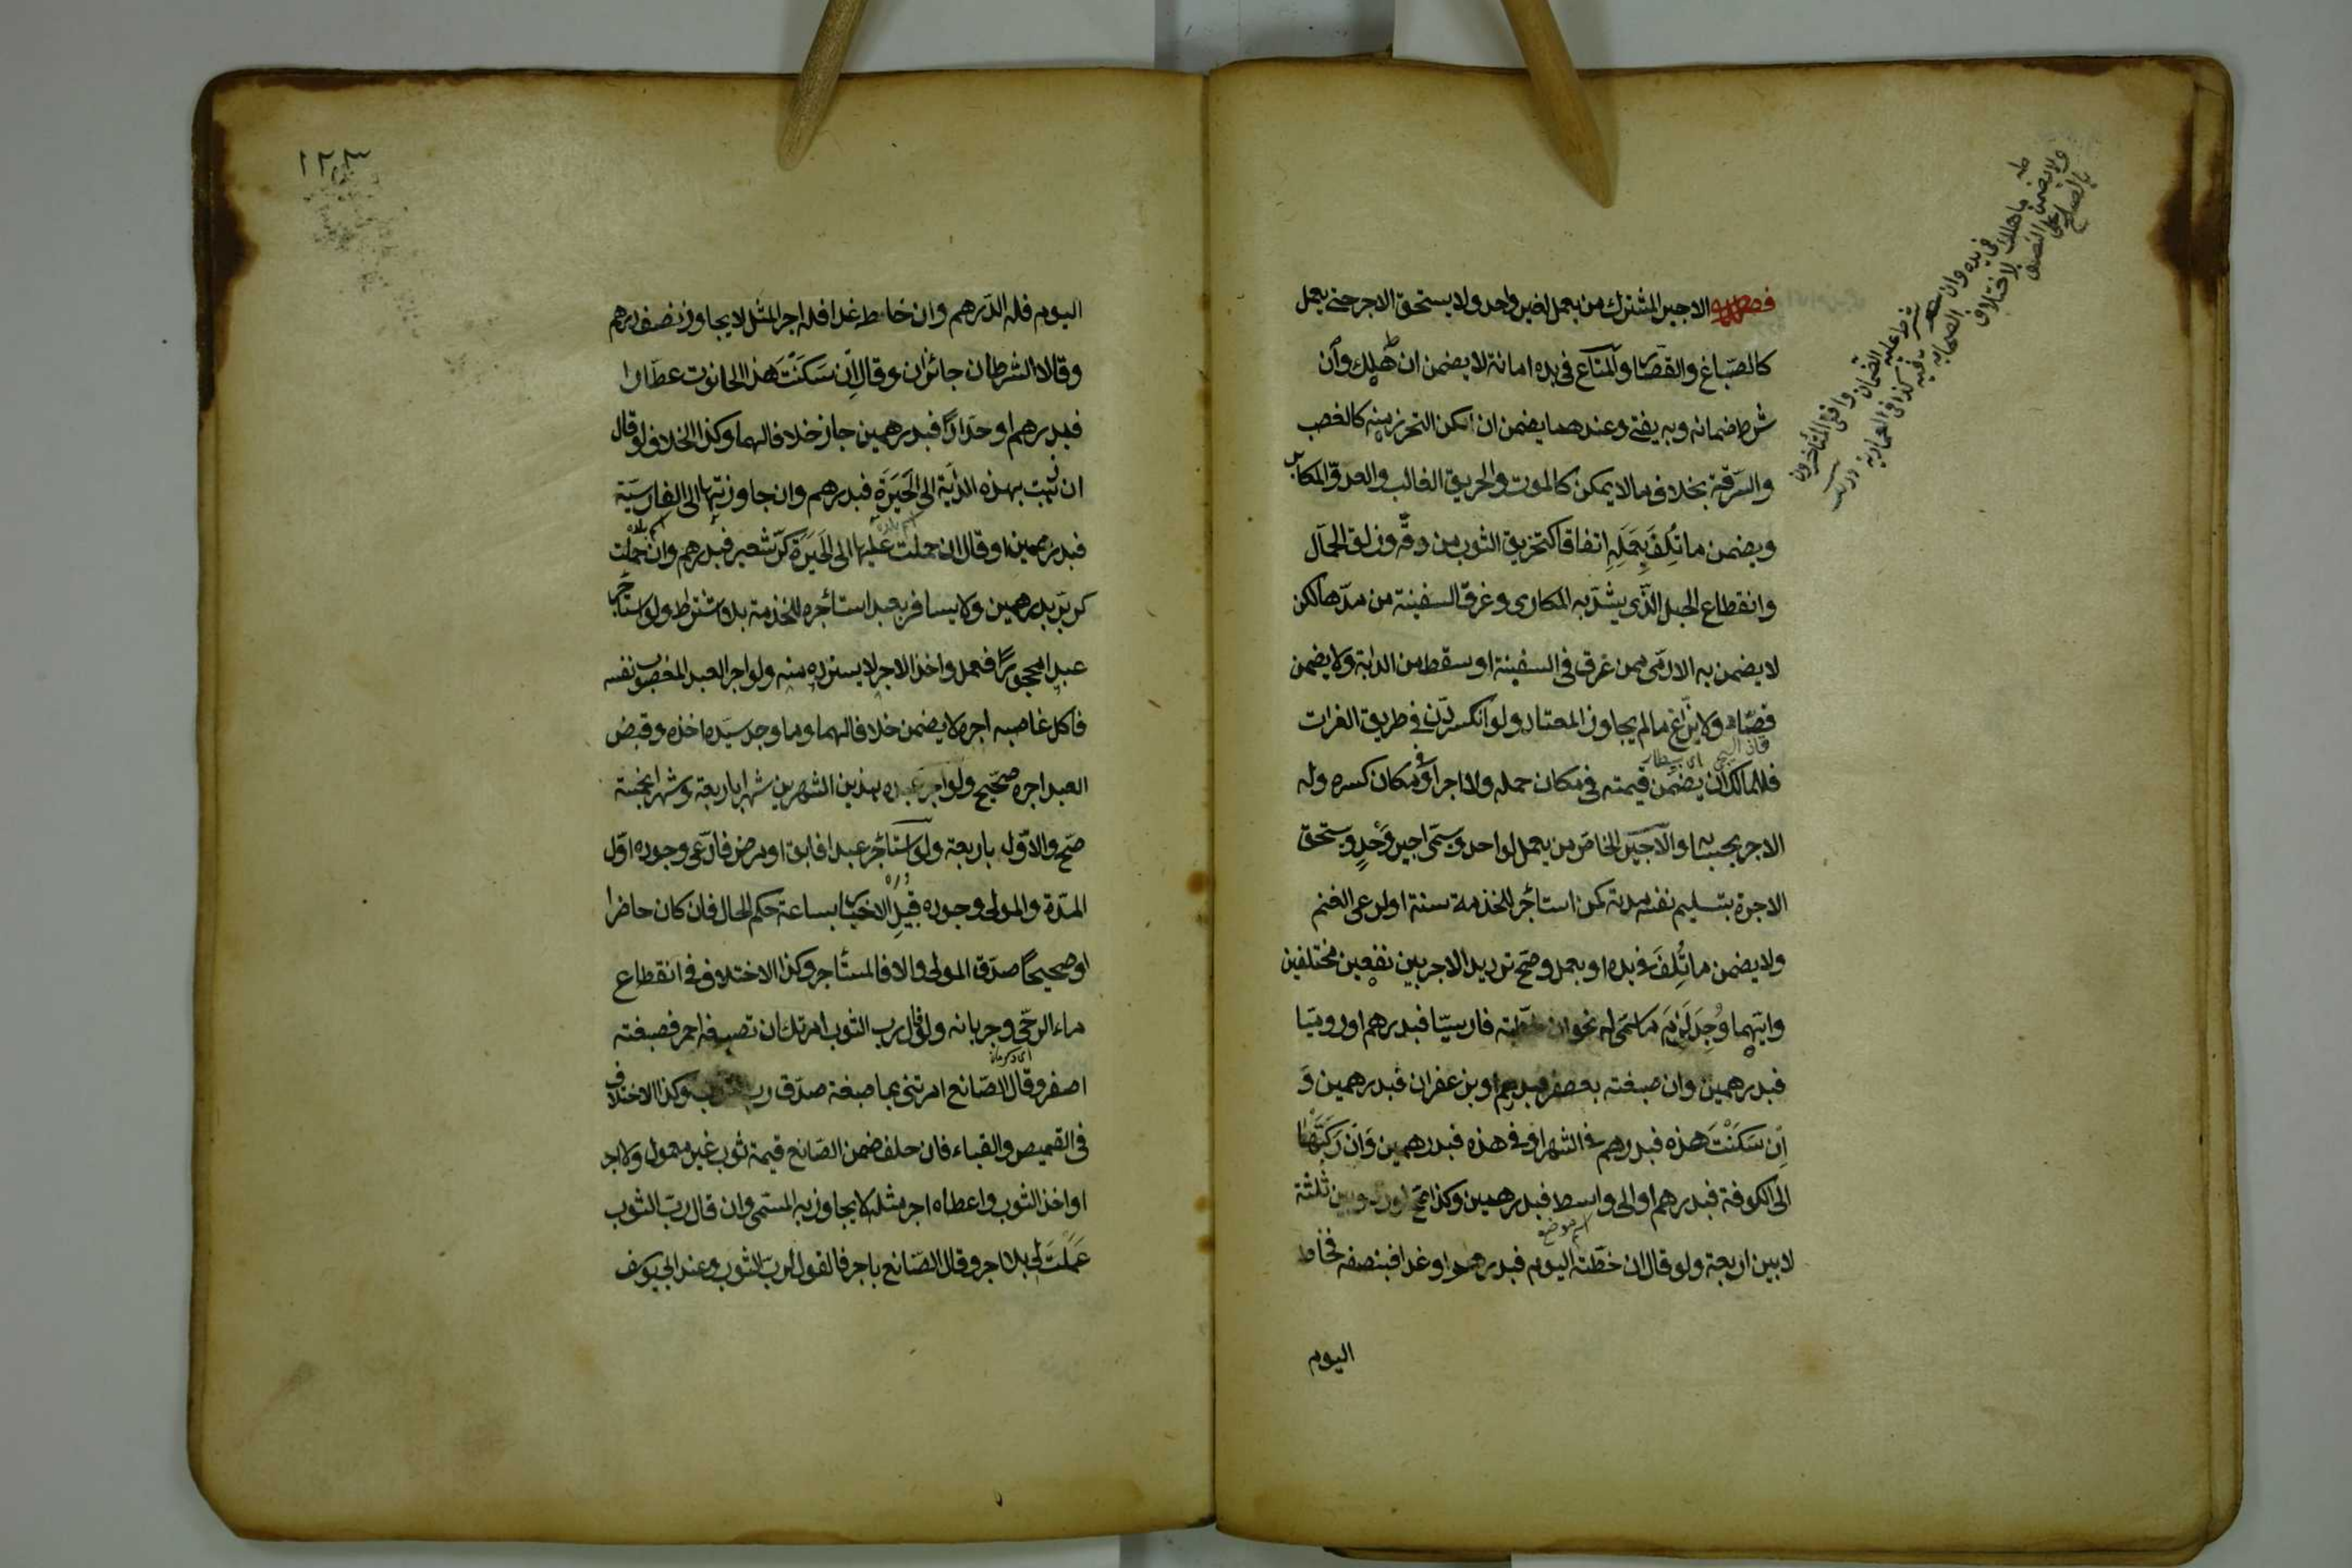 فصل الاجير المشترك من يعمل لغير واحد ولا يستحق الاجر حتى يعمل
كالصباغ والقصار والمتاع فى يده امانة لا يضمن ان هلك وان
شرط ضمانه وبه يفتى وعندهما يضمن ان امكن التحرز منه كالغصب
والسرقة بخلاف ما لا يمكن كالموت والحريق الغالب والعدو المكابر
ويضمن ما تلف بعمله اتفاقا كتخريق الثوب من دقه وزلق الحمال
وانقطاع الحبل الذى يشد به المكارى وغرق السفينة من مدها لكن
لا يضمن به الادمى ممن غرق فى السفينة او سقط من الدابة ولا يضمن
فصاد ولا بزاغ ما لم يجاوز المعتاد ولو انكسر دن فى طريق الفرات
فللمالك ان يضمن قيمته فى مكان حمله ولا اجر او فى مكان كسره وله
الاجر بحسابه والاجير الخاص من يعمل لواحد ويسمى اجير وحد ويستحق
الاجرة بتسليم نفسه مدته كمن استأجر للخدمة سنة او لرعى الغنم
ولا يضمن ما تلف فى يده او بعمله وصح ترديد الاجر بين نفعين مختلفين
وايهما وجد لزم ما سمى له نحو ان خطته فارسيا فبدرهم او روميا
فبدرهمين وان صبغته بعصفر فبدرهم او بزعفران فبدرهمين و
ان سكنت هذه فبدرهم فى الشهر او فى هذه فبدرهمين وان ركبتها
الى الكوفة فبدرهم او الى واسط فبدرهمين وكذا يصح لو ردد بين ثلثة
اسم موضع
لا بين اربعة ولو قال ان خطته اليوم فبدرهم او غدا فبنصفه فخاط
اليوم
ولا يضمن ما هلك فى يده وان شرط عليه الضمان
وافتى المتأخرون بالصلح على النصف
لاختلاف الصحابة فيه كذا فى العمادية درر
١٢٣
اليوم فله الدرهم وان خاط غدا فله اجر المثل لا يجاوز نصف درهم
وقالا الشرطان جائزان وقال ان سكنت هذا الحانوت عطارا
فبدرهم او حدادا فبدرهمين جاز خلافا لهما وكذا الخلاف لو قال
ان ذهبت بهذه الدابة الى الحيرة فبدرهم وان جاوزتها الى القادسية
اسم بلده اسم بلده
فبدرهمين او قال ان حملت عليها الى الحيرة كر شعير فبدرهم وان حملت
كر بر بدرهمين ولا يسافر بعبد استأجره للخدمة بلا اشتراط ولو استأجر
عبدا محجورا فعمل واخذ الاجر لا يسترده منه ولو اجر العبد المغصوب نفسه
فاكل غاصبه اجره لا يضمن خلافا لهما وما وجد سيده اخذه وقبض
العبد اجره صحيح ولو اجر عبده هذين الشهرين شهرا باربعة وشهرا بخمسة
صح والاول باربعة ولو استأجر عبدا فابق او مرض فادعى وجوده اول
المدة والمولى وجوده قبيل الاخبار بساعة حكم الحال فان كان حاضرا
او صحيحا صدق المولى والا فالمستأجر وكذا الاختلاف فى انقطاع
ماء الرحى وجريانه ولو قال رب الثوب امرتك ان تصبغه احمر فصبغته
اصفر وقال الصانع امرتنى بما صبغته صدق رب الثوب وكذا الاختلاف
فى القميص والقباء فان حلف ضمن الصانع قيمة ثوب غير معمول ولا اجر
او اخذ الثوب واعطاه اجر مثله لا يجاوز به المسمى وان قال رب الثوب
عملت لى بلا اجر وقال الصانع باجر فالقول لرب الثوب وعند ابى يوسف